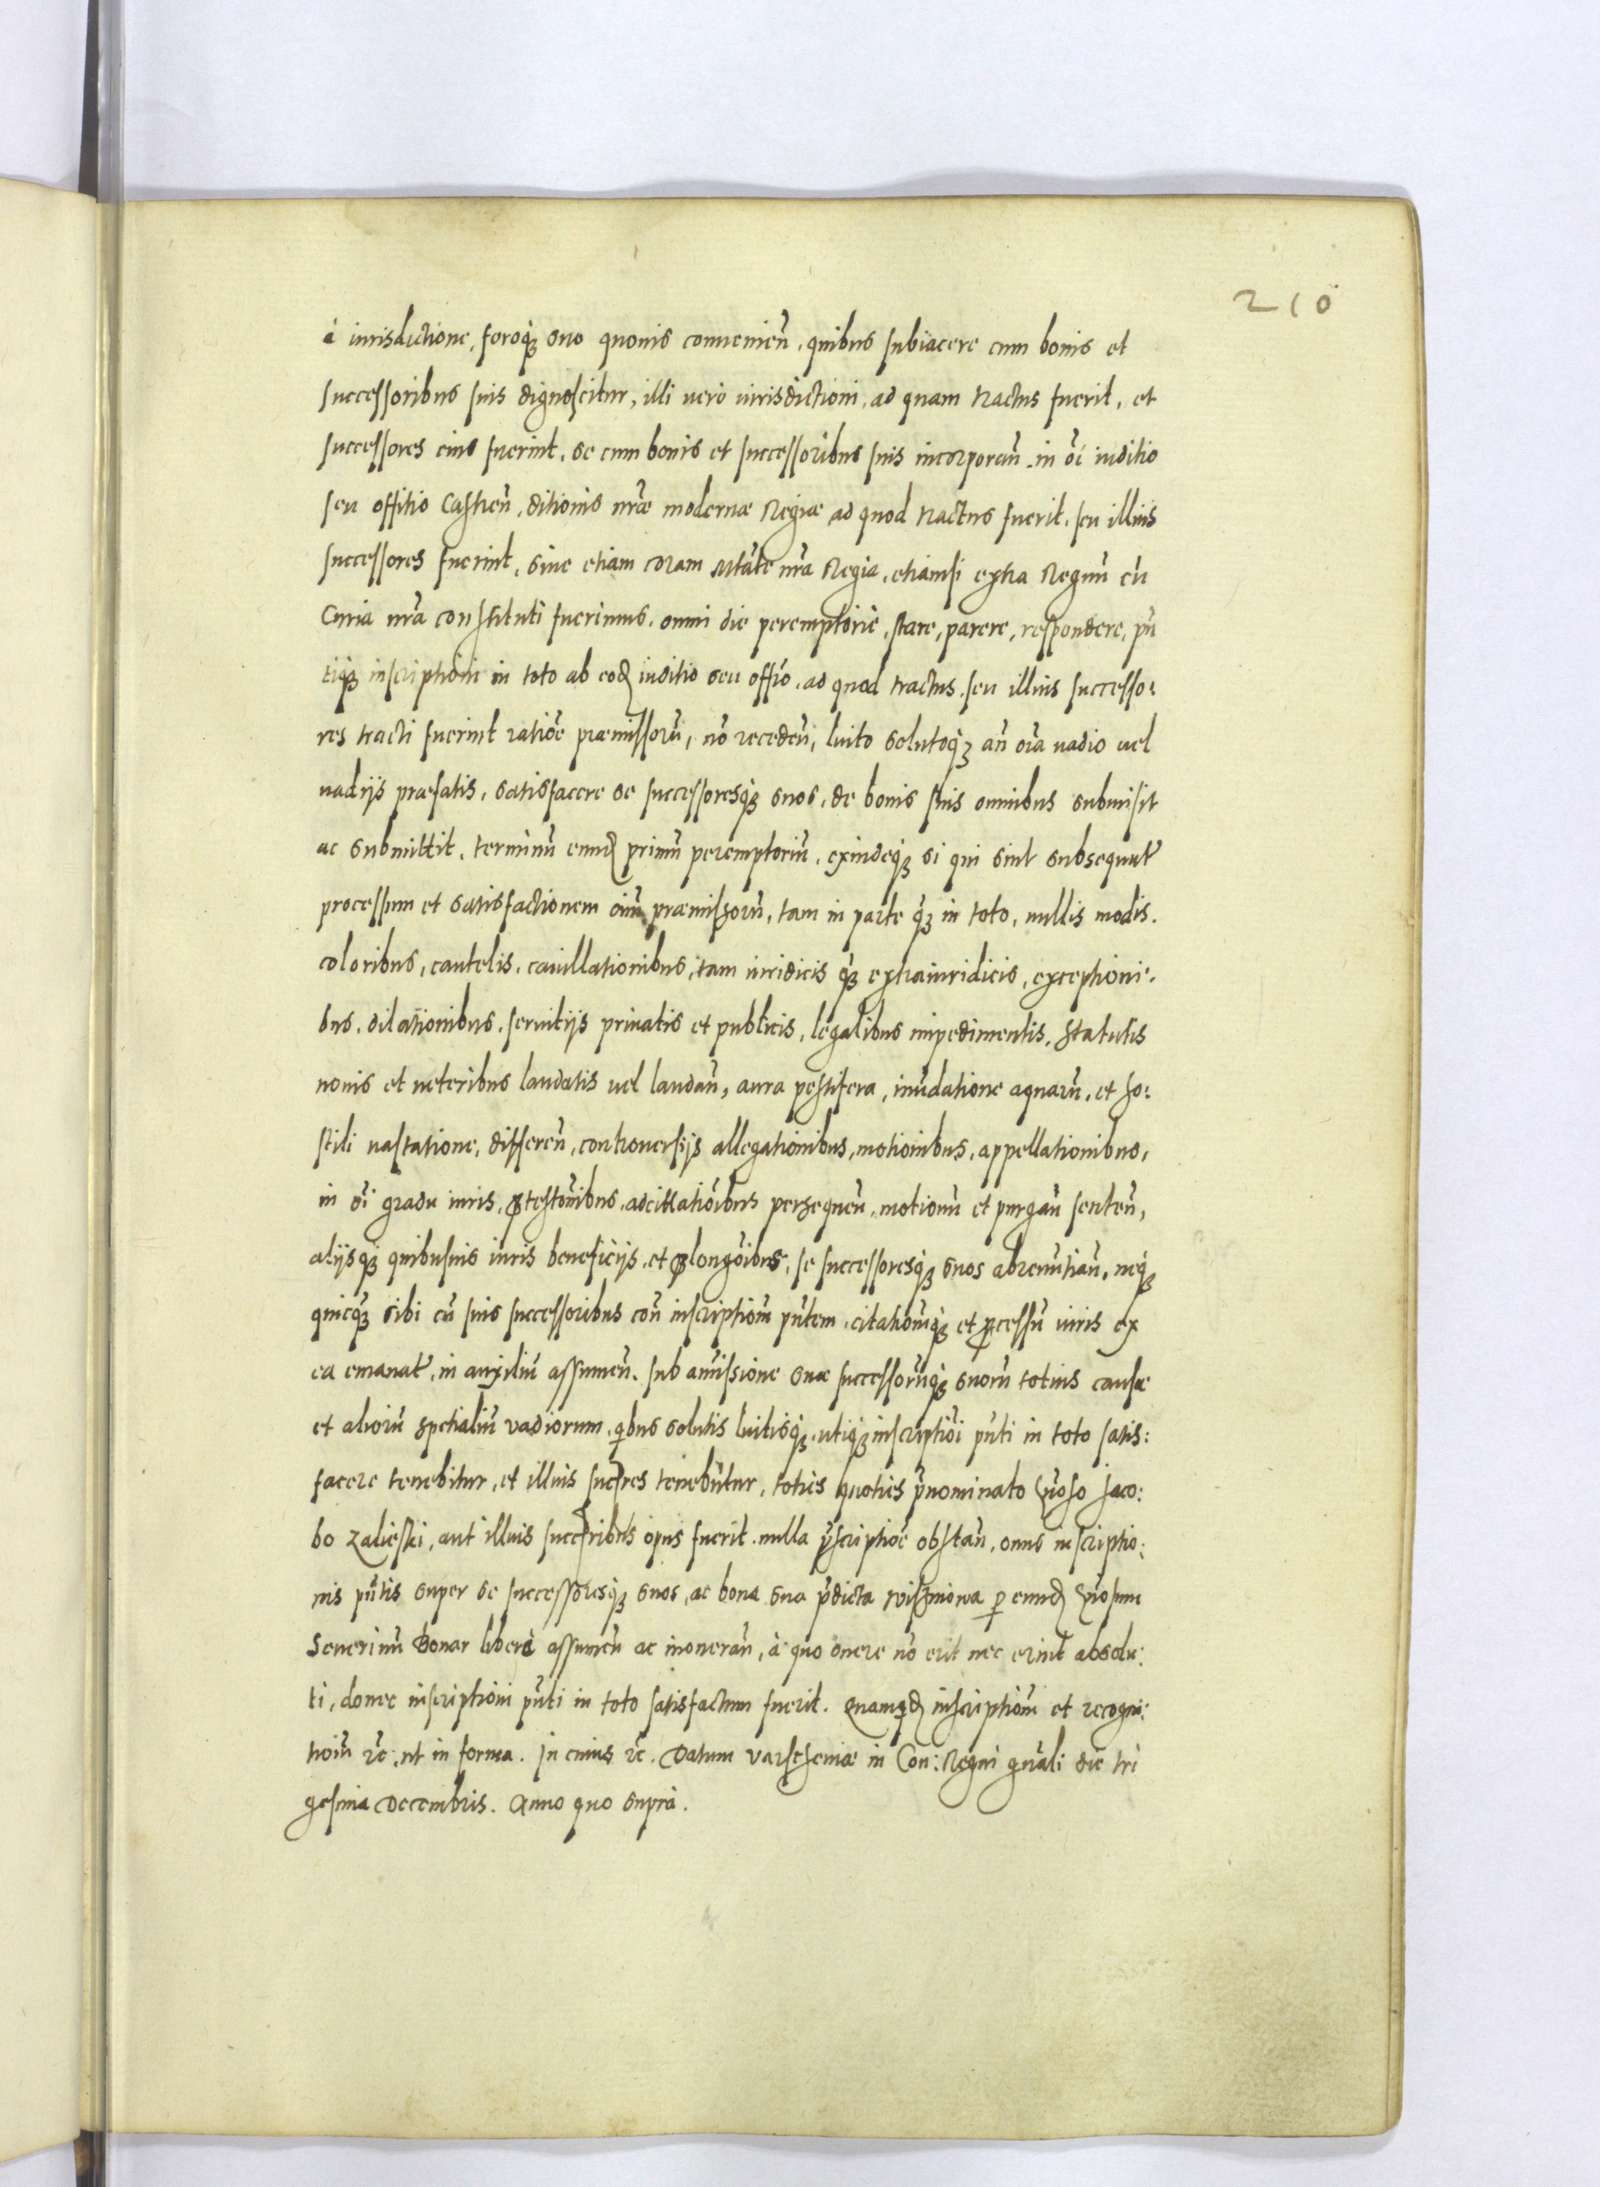 210
à iurisdictione, foroq́ꝫ suo quouis conuenień, quibus subiacere cum bonis et
successoribus suis dignoscitur, illi vero iurisdictioni, ad quam tractus fuerit, et
successores eius fuerint, se cum bonis et successoribus suis incorporań, in oi̅ iuditio
seu offitio Castreń, ditionis nr̅æ modernæ Regiæ ad quod tractus fuerit, seu illius
successores fuerint, siue etiam coram Mtate nr̅a Regia, etiamsi extra Regnu̅ cu̅
Curia nr̅a constituti fuerimus, omni die peremptoriè, stare, parere, respondere, pn̅
tiq́ꝫ inscriptioni in toto ab eod̅ iuditio seu offi̅o, ad quod tractus, seu illius successo:
res tracti fuerint ratio̅e præmissoru̅, no̅ recedeń, luito solutoq́ꝫ an̅ oi̅a vadio uel
vadijs præfatis, satisfacere se successoresq́ꝫ suos, de bonis suis omnibus submisit
ac submittit, terminu̅ eund̅ primu̅ peremptoriu̅, exindeq́ꝫ si qui sint subsequut̅
processum et satisfactionem oi̅m præmissoru̅, tam in parte q́ꝫ in toto, nullis modis,
coloribus, cautelis, cauillationibus, tam iuridicis q́ꝫ extraiuridicis, exceptioni:
bus, dilationibus, seruitijs priuatis et publicis, legalibus impedimentis, statutis
nouis et veteribus laudatis uel laudań, aura pestifera, inu̅datione aquaru̅, et ho:
stili vastatione, differeń, controuersijs allegationibus, motionibus, appellationibus,
in oi̅ gradu iuris, ꝓtesto̅nibus, adcitatio̅ibus persequeń, motionu̅ et purgań senteń,
alijsq́ꝫ quibusuis iuris beneficijs, et ꝓlongo̅ibus, se successoresq́ꝫ suos abrenu̅tiań, neq́ꝫ
quicq́ꝫ sibi cu̅ suis successoribus con̅ inscriptiou̅ pn̅tem, citatiou̅q́ꝫ et ꝓcessu̅ iuris ex
ea emanat̅, in auxiliu̅ assumeń, sub amissione suæ successoru̅q́ꝫ suoru̅ totius causæ
et alioru̅ spetialiu̅ vadiorum, qibus solutis luitisq́ꝫ, utiq́ꝫ inscriptio̅i pn̅ti in toto satis:
facere tenebitur, et illius succ̅res tenebu̅tur, toties quoties p̅nominato Gn̅oso Jaco:
bo Zalieski, aut illius succ̅ribus opus fuerit, nulla p̅scriptio̅e obstań, onus inscriptio:
nis pn̅tis super se successoresq́ꝫ suos, ac bona sua p̅dicta Wiszniowa ꝑ eund̅ Gn̅osum
Seuerinu̅ Bonar liberè assumeń ac inonerań, à quo onere no̅ erit nec erint absolu:
ti, donec inscriptioni pn̅ti in toto satisfactum fuerit. Quamq́d̅ inscriptiou̅ et recogni:
tiou̅ &c, ut in forma. In cuius &c. Datum Varscheuiæ in Con: Regni gn̅ali die tri
gesima Decembris. Anno quo suprà.